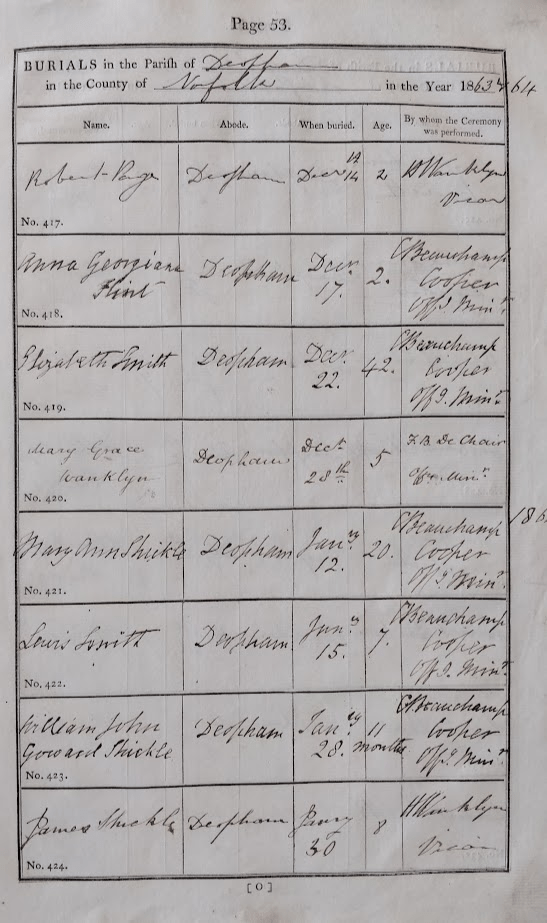 Page 53.
BURIALS in the Parish of Deopham
in the County of Norfolk in the Year 1863 & 64
Name. Abode. When buried. Age. By whom the Ceremony
was performed.
Robert Page Deopham Decr 14 2 H Wanklyn
Vicar
No. 417.
Anna Georgiana Deopham Decr C Beauchamp
Flint 17. 2. Cooper
Offg. Minr.
No. 418.
Elizabeth Smith Deopham Decr C Beauchamp
22. 42. Cooper
Offg. Minr.
No. 419.
Mary Grace Deopham Decr 5 F. B. De Chair
Wanklyn 28th Minr
No. 420.
186
Mary Ann Shickle Deopham Jany 20. C Beauchamp
12. Cooper
Offg. Minr.
No. 421.
Lewis Smith Deopham Jany 7. C Beauchamp
15. Cooper
Offg. Minr.
No. 422.
William John Deopham Jany 11 C Beauchamp
Goward Shickle 28. months Cooper
Offg. Minr.
No. 423.
James Shickle Deopham Jany 8 H Wanklyn
30 Vicar
No. 424.
[ O ]